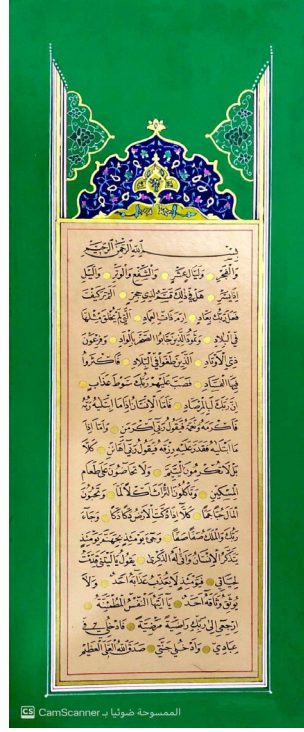 بِسْمِ اللهِ الرَّحْمٰنِ الرَّحِيمِ
وَالْفَجْرِ وَلَيَالٍ عَشْرٍ وَالشَّفْعِ وَالْوَتْرِ وَاللَّيْلِ
إِذَا يَسْرِ هَلْ فِي ذَلِكَ قَسَمٌ لِذِي حِجْرٍ أَلَمْ تَرَ كَيْفَ
فَعَلَ رَبُّكَ بِعَادٍ إِرَمَ ذَاتِ الْعِمَادِ الَّتِي لَمْ يُخْلَقْ مِثْلُهَا
فِي الْبِلَادِ وَثَمُودَ الَّذِينَ جَابُوا الصَّخْرَ بِالْوَادِ وَفِرْعَوْنَ
ذِي الْأَوْتَادِ الَّذِينَ طَغَوْا فِي الْبِلَادِ فَأَكْثَرُوا
فِيهَا الْفَسَادَ فَصَبَّ عَلَيْهِمْ رَبُّكَ سَوْطَ عَذَابٍ
إِنَّ رَبَّكَ لَبِالْمِرْصَادِ فَأَمَّا الْإِنْسَانُ إِذَا مَا ابْتَلَاهُ رَبُّهُ
فَأَكْرَمَهُ وَنَعَّمَهُ فَيَقُولُ رَبِّي أَكْرَمَنِ وَأَمَّا إِذَا
مَا ابْتَلَاهُ فَقَدَرَ عَلَيْهِ رِزْقَهُ فَيَقُولُ رَبِّي أَهَانَنِ كَلَّا
بَلْ لَا تُكْرِمُونَ الْيَتِيمَ وَلَا تَحَاضُّونَ عَلَى طَعَامِ
الْمِسْكِينِ وَتَأْكُلُونَ التُّرَاثَ أَكْلًا لَمًّا وَتُحِبُّونَ
الْمَالَ حُبًّا جَمًّا كَلَّا إِذَا دُكَّتِ الْأَرْضُ دَكًّا دَكًّا وَجَاءَ
رَبُّكَ وَالْمَلَكُ صَفًّا صَفًّا وَجِيءَ يَوْمَئِذٍ بِجَهَنَّمَ يَوْمَئِذٍ
يَتَذَكَّرُ الْإِنْسَانُ وَأَنَّى لَهُ الذِّكْرَى يَقُولُ يَا لَيْتَنِي قَدَّمْتُ
لِحَيَاتِي فَيَوْمَئِذٍ لَا يُعَذِّبُ عَذَابَهُ أَحَدٌ وَلَا
يُوثِقُ وَثَاقَهُ أَحَدٌ يَا أَيَّتُهَا النَّفْسُ الْمُطْمَئِنَّةُ
ارْجِعِي إِلَى رَبِّكِ رَاضِيَةً مَرْضِيَّةً فَادْخُلِي فِي
عِبَادِي وَادْخُلِي جَنَّتِي صَدَقَ اللهُ الْعَلِيُّ الْعَظِيمُ
الممسوحة ضوئيا بـ CamScanner